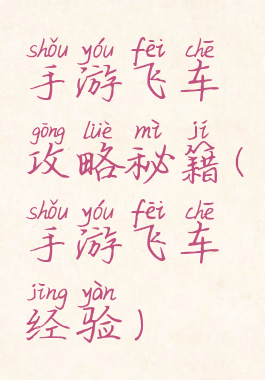 shǒu yóu fēi chē
手游飞车
gōng lüè mì jí
攻略秘籍(
shǒu yóu fēi chē
手游飞车
jīng yàn
经验)